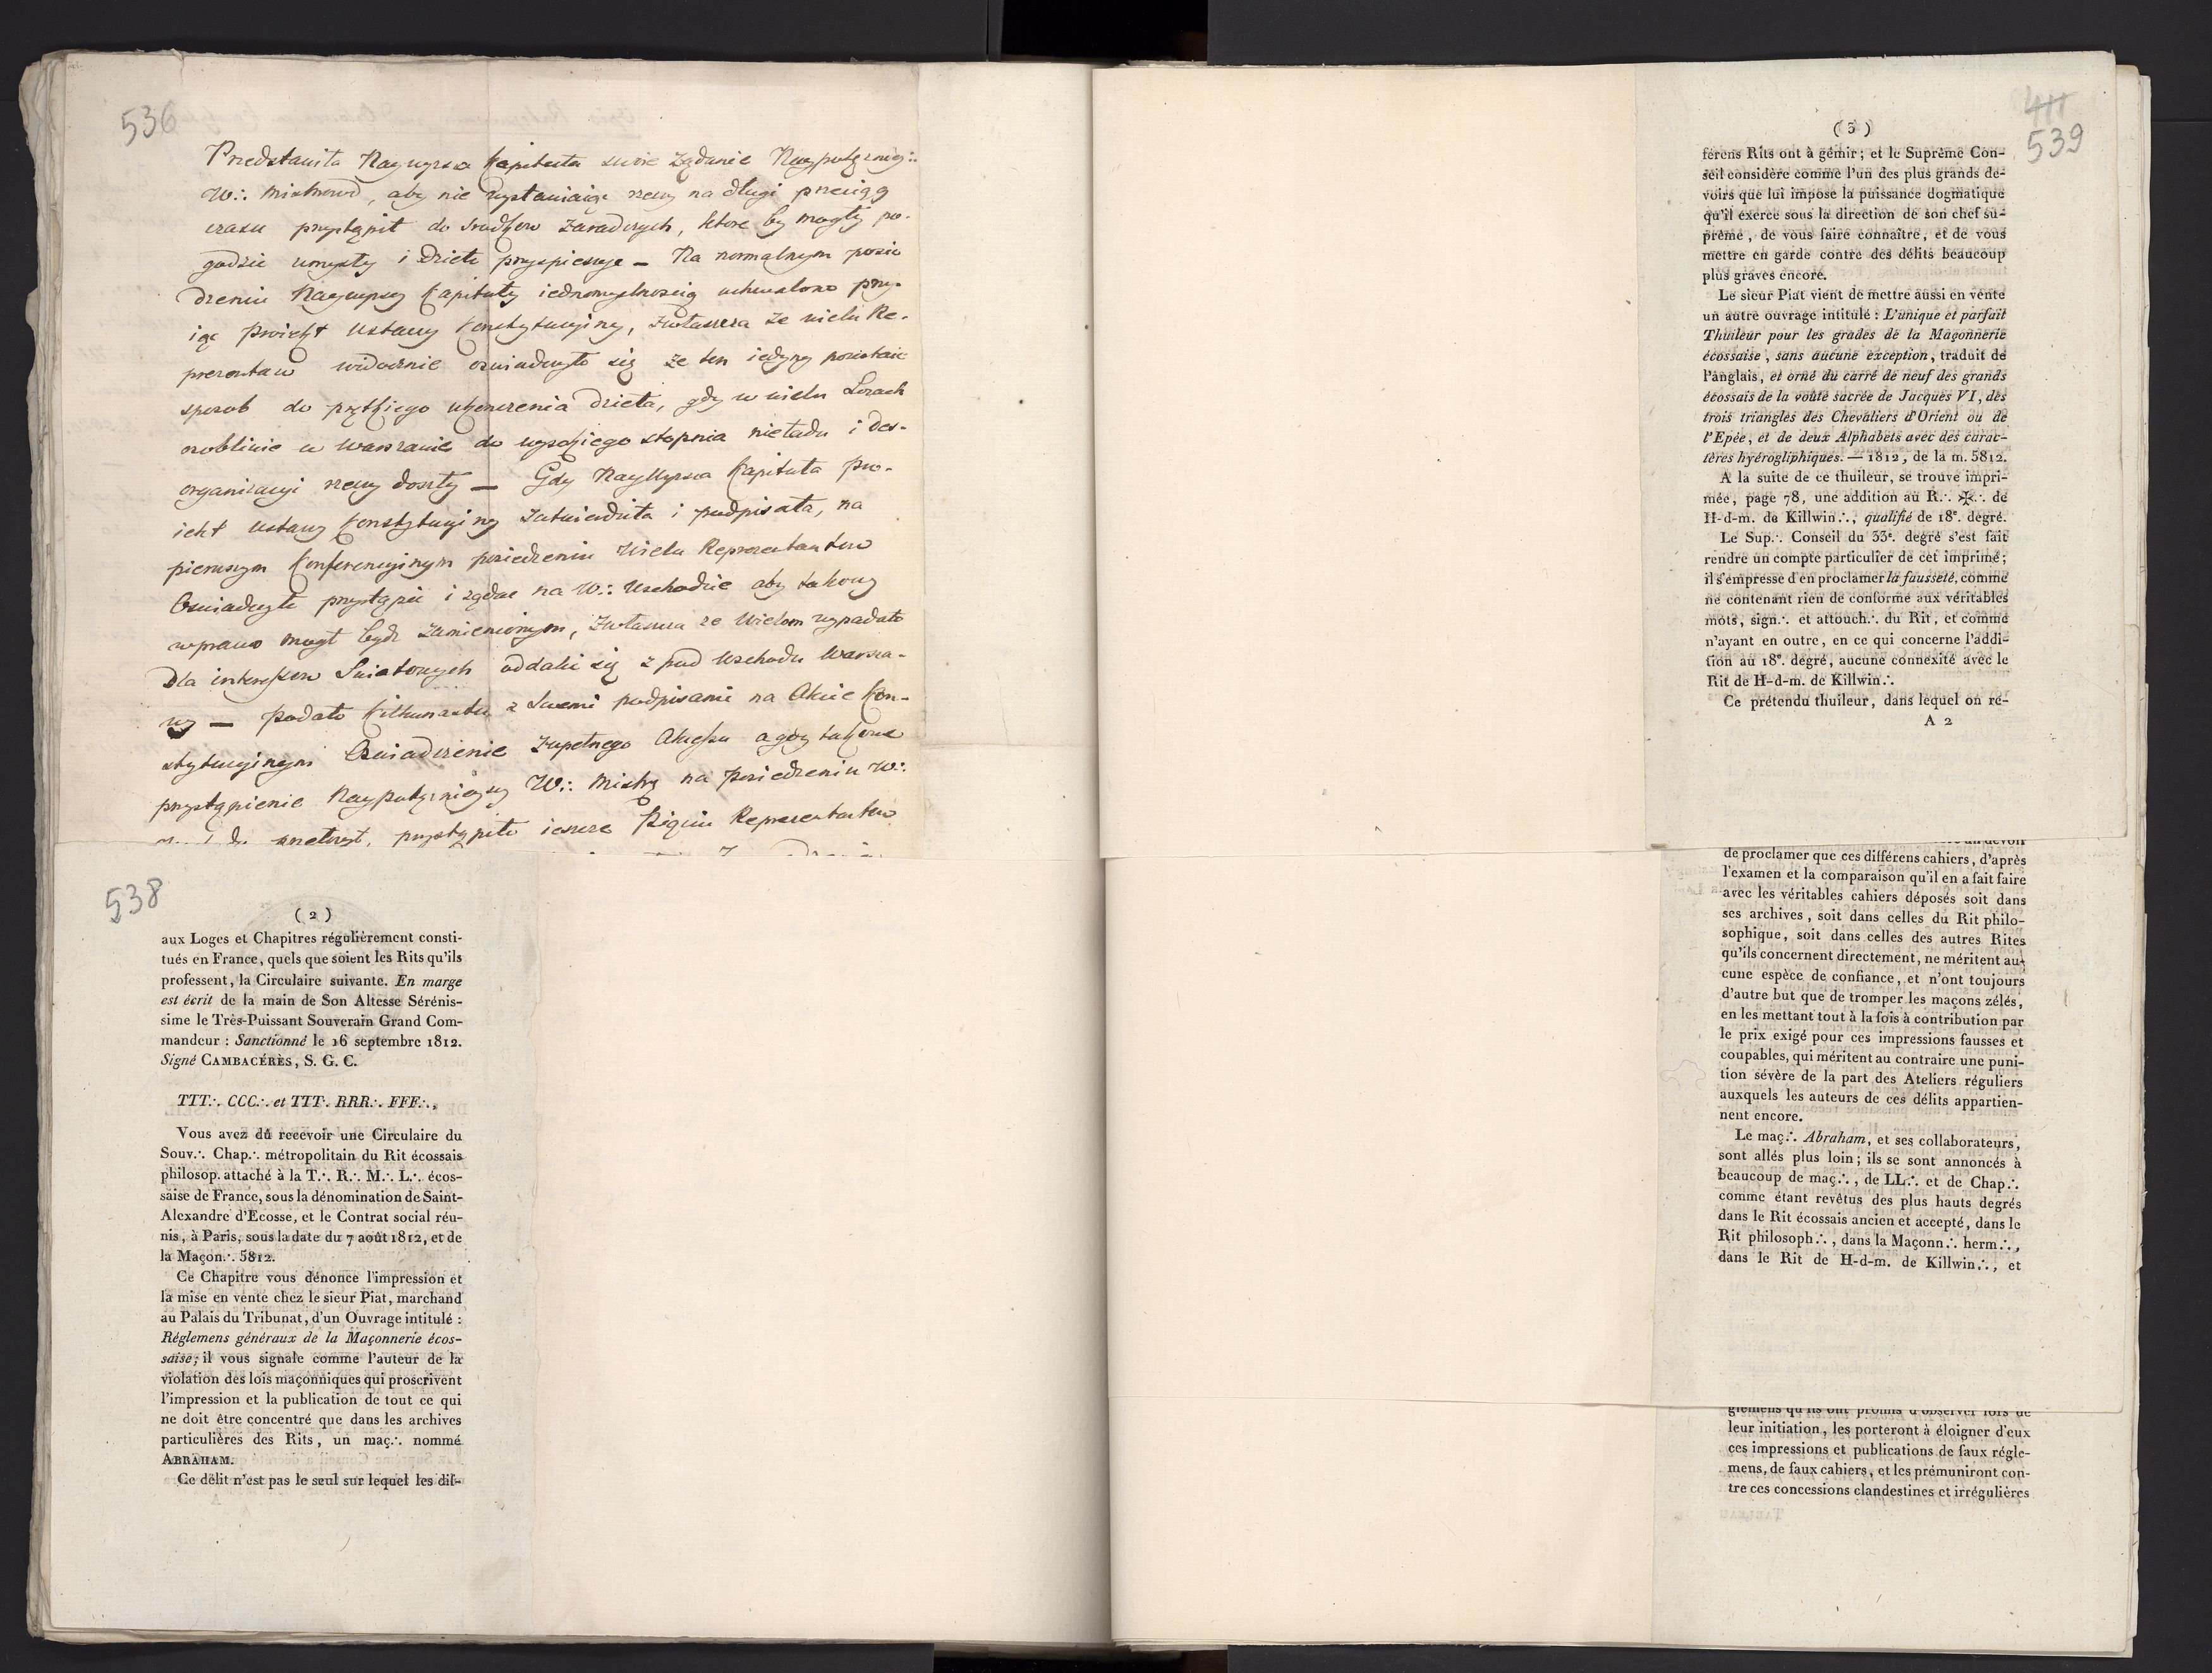 536
Przedstawiła Naywyzsza Kapituła swoie Ządanie Naypotęzniey:
W:. Mistrzowi, aby nie wystawiaiąc rzeczy na długi przeciąg
czasu przystąpił do srodkow zaradczych, ktore by mogły po-
godzic umysły i Dzieło przyspieszyc — Na normalnym posie
dzeniu Naywyzszey Kapituły iednomyslnoscią uchwalono przy-
iąc Proiekt Ustawy Konstytucyiney, zwłaszcza ze wielu Re-
prezentantow widocznie oswiadczyło się ze ten iedyny pozostaie
sposob do prętkiego ukonczenia dzieła, gdy w wielu Lozach
osobliwie w Warszawie do wysokiego stopnia nieładu i des-
organizacyi rzeczy doszły — Gdy Naywyzsza Kapituła Pro-
iekt Ustawy Konstytucyiney zatwierdziła i podpisała, na
pierwszym Konferencyinym posiedzeniu wielu Reprezentantow
Oswiadczyło przystąpic i ządac na W:. Wschodzie aby takowy
w prawo mogł bydz zamienionym, zwłaszcza ze wielom wypadało
Dla interessow Swiatowych oddalic się z pod Wschodu Warsza-
wy — podało kilkunastu z swemi podpisami na Akcie Kon-
stytucyinym Oswiadczenie zupełnego Akcessu a gdy takowe
przystąpienie Naypotęznieyszy W:. Mistrz na posiedzeniu W:.
przystąpiło ieszcze Pięciu Reprezentantow
538
( 2 )
aux Loges et Chapitres régulièrement consti-
tués en France, quels que soient les Rits qu'ils
professent, la Circulaire suivante. En marge
est écrit de la main de Son Altesse Sérénis-
sime le Très-Puissant Souverain Grand Com-
mandeur : Sanctionné le 16 septembre 1812.
Signé CAMBACÉRÈS, S. G. C.
TTT∴ CCC∴ et TTT∴ RRR∴ FFF∴,
Vous avez dû recevoir une Circulaire du
Souv∴ Chap∴ métropolitain du Rit écossais
philosop. attaché à la T∴ R∴ M∴ L∴ écos-
saise de France, sous la dénomination de Saint-
Alexandre d'Ecosse, et le Contrat social réu-
nis, à Paris, sous la date du 7 août 1812, et de
la Maçon∴ 5812.
Ce Chapitre vous dénonce l'impression et
la mise en vente chez le sieur Piat, marchand
au Palais du Tribunat, d'un Ouvrage intitulé :
Réglemens généraux de la Maçonnerie écos-
saise; il vous signale comme l'auteur de la
violation des lois maçonniques qui proscrivent
l'impression et la publication de tout ce qui
ne doit être concentré que dans les archives
particulières des Rits, un maç∴ nommé
ABRAHAM.
Ce délit n'est pas le seul sur lequel les dif-
411
539
( 3 )
férens Rits ont à gémir; et le Suprême Con-
seil considère comme l'un des plus grands de-
voirs que lui impose la puissance dogmatique
qu'il exerce sous la direction de son chef su-
prême, de vous faire connaître, et de vous
mettre en garde contre des délits beaucoup
plus graves encore.
Le sieur Piat vient de mettre aussi en vente
un autre ouvrage intitulé : L'unique et parfait
Thuileur pour les grades de la Maçonnerie
écossaise, sans aucune exception, traduit de
l'anglais, et orné du carré de neuf des grands
écossais de la voûte sacrée de Jacques VI, des
trois triangles des Chevaliers d'Orient ou de
l'Epée, et de deux Alphabets avec des carac-
tères hyérogliphiques. — 1812, de la m. 5812.
A la suite de ce thuileur, se trouve impri-
mée, page 78, une addition au R∴ ✠∴ de
H-d-m. de Killwin∴, qualifié de 18e. degré.
Le Sup∴ Conseil du 33e. degré s'est fait
rendre un compte particulier de cet imprimé;
il s'empresse d'en proclamer la fausseté, comme
ne contenant rien de conforme aux véritables
mots, sign∴ et attouch∴ du Rit, et comme
n'ayant en outre, en ce qui concerne l'addi-
tion au 18e. degré, aucune connexité avec le
Rit de H-d-m. de Killwin∴
Ce prétendu thuileur, dans lequel on re-
A 2
un devoir
de proclamer que ces différens cahiers, d'après
l'examen et la comparaison qu'il en a fait faire
avec les véritables cahiers déposés soit dans
ses archives, soit dans celles du Rit philo-
sophique, soit dans celles des autres Rites
qu'ils concernent directement, ne méritent au-
cune espèce de confiance, et n'ont toujours
d'autre but que de tromper les maçons zélés,
en les mettant tout à la fois à contribution par
le prix exigé pour ces impressions fausses et
coupables, qui méritent au contraire une puni-
tion sévère de la part des Ateliers réguliers
auxquels les auteurs de ces délits appartien-
nent encore.
Le maç∴ Abraham, et ses collaborateurs,
sont allés plus loin; ils se sont annoncés à
beaucoup de maç∴, de LL∴ et de Chap∴
comme étant revêtus des plus hauts degrés
dans le Rit écossais ancien et accepté, dans le
Rit philosoph∴, dans la Maçonn∴ herm∴,
dans le Rit de H-d-m. de Killwin∴, et
glemens qu'ils ont promis d'observer lors de
leur initiation, les porteront à éloigner d'eux
ces impressions et publications de faux régle-
mens, de faux cahiers, et les prémuniront con-
tre ces concessions clandestines et irrégulières